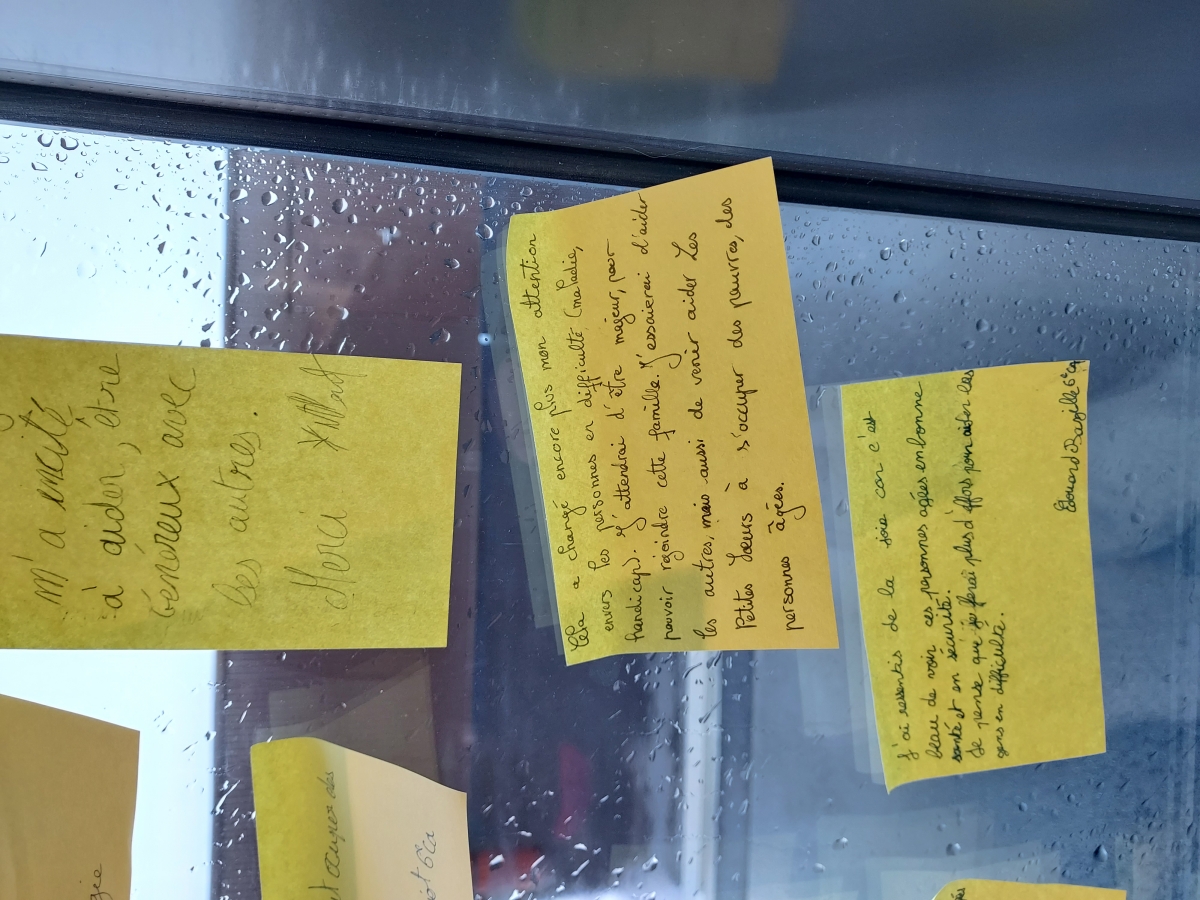 m'a encité
à aider, être
généreux avec
les autres.
Merci
Cela a changé encore plus mon attention
envers les personnes en difficulté (maladie,
handicap). J'attendrai d'être majeur, pour
pouvoir rejoindre cette famille. J'essaierai d'aider
les autres, mais aussi de venir aider Les
Petites Sœurs à s'occuper des pauvres, des
personnes âgées.
J'ai ressentis de la joie car c'est
beau de voir ces personnes agées en bonne
santé et en sécurité.
Je pense que je ferai plus d'effors pour aider les
gens en difficulté.
Édouard 6°Ca
occuper des
6°Ca